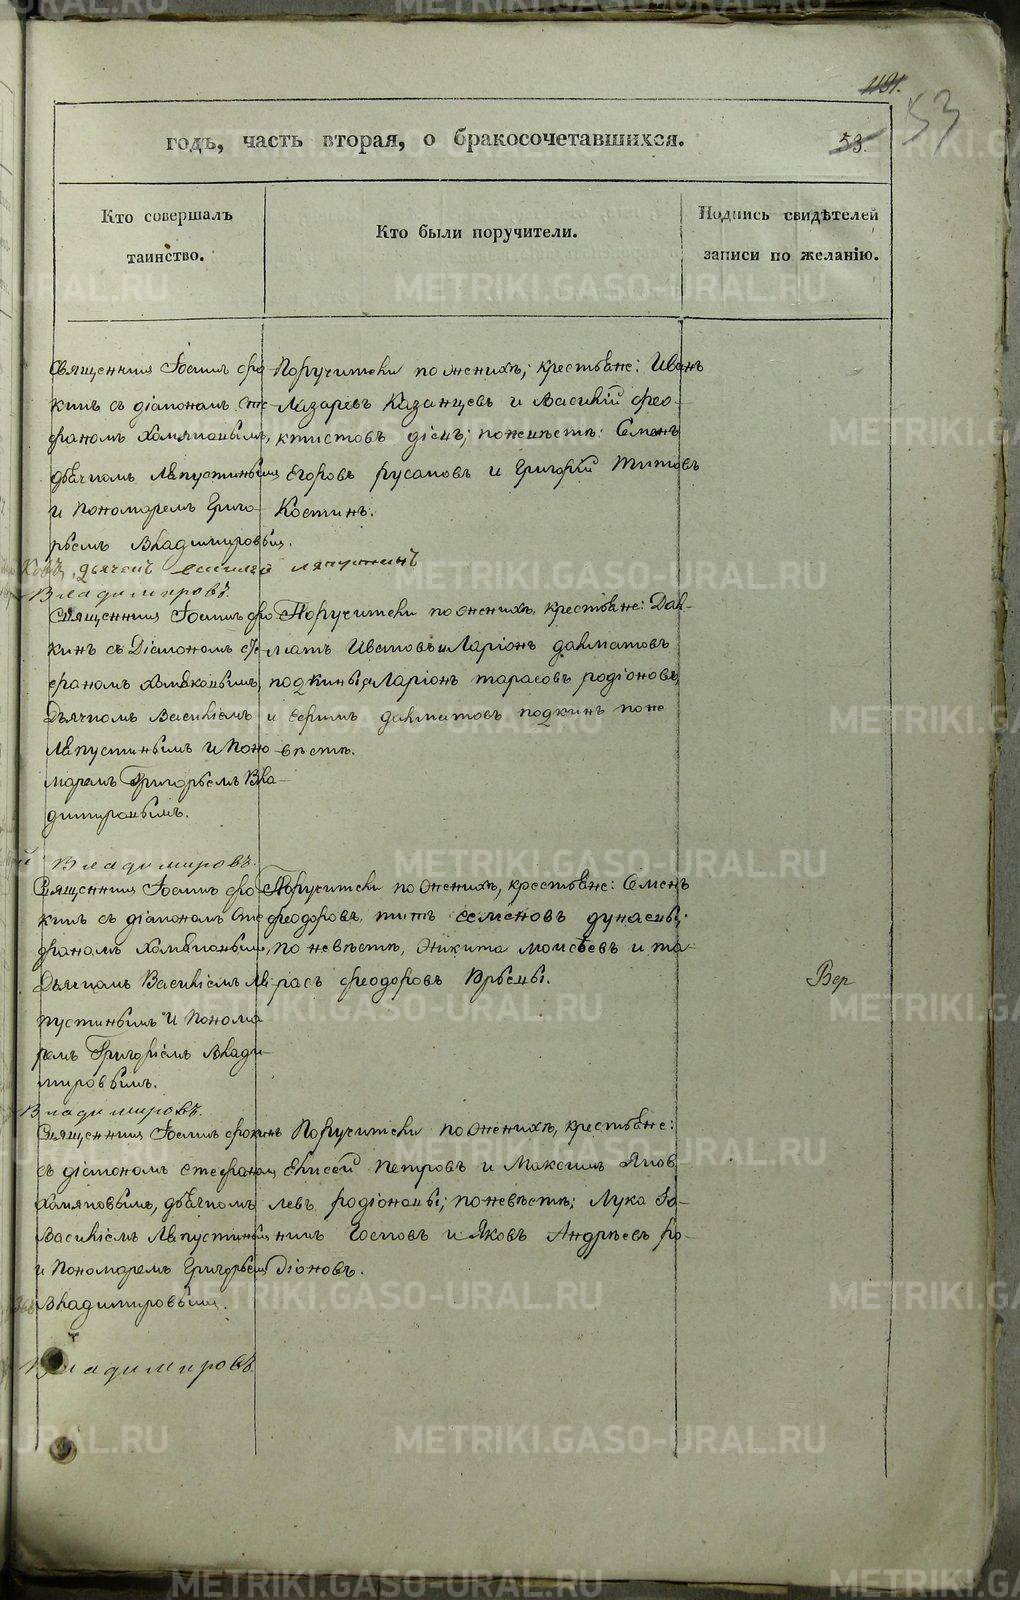 1181.
53
годъ, часть вторая, о бракосочетавшихся.
53.
Кто совершалъ
таинство.
Кто были поручители.
Подпись свидѣтелей
записи по желанію.
Священникъ Іоаннъ Фро-
кинъ съ діакономъ Сте-
фаномъ Хомяковымъ,
дьячкомъ Лапустинымъ
и Пономаремъ Григо-
рьемъ Владимировым.
Поручители по женихѣ; крестьяне: Иванъ
Лазаревъ Казанцевъ и Василій Фео-
ктистовъ діевъ; по невѣстѣ: Семенъ
Егоровъ Русаковъ и Григорій Титовъ
Костинъ.
дьячекъ Василій Лапустинъ
Владимировъ.
Священникъ Іоаннъ Фро
кинъ съ Діакономъ Сте
фаномъ Хомяковымъ,
Дьячкомъ Василіемъ
Лапустинымъ и Поно
маремъ Григорьемъ Вла-
димировымъ.
Поручители по женихѣ, крестьяне: Дал-
матъ Ивановъ и Ларіонъ Далматовъ
подкины, Ларіонъ Тарасовъ Родіоновъ,
и Ефимъ Далматовъ подкинъ по не
вѣстѣ.
Владимировъ.
Священникъ Іоаннъ Фро
кинъ съ діакономъ Сте
фаномъ Хомяковымъ,
Дьячкомъ Василіемъ Ла
пустинымъ и Понома
ремъ Григоріемъ Влади-
мировымъ.
Поручители по женихѣ, крестьяне: Семенъ
Феодоровъ, Титъ Семеновъ Дунаевы;
по невѣстѣ, Никита Моисѣевъ и Та-
расъ Феодоровъ Юрьевы.
Вер
Владимировъ.
Священникъ Іоаннъ Фрокинъ
съ діакономъ Стефаном
Хомяковымъ, дьячкомъ
Василіемъ Лапустиным
и Пономаремъ Григорьем
Владимировым.
Поручители по женихѣ, крестьяне:
Елисей Петровъ и Максимъ Яков-
левъ Родіоновы; по невѣстѣ; Лука Іо-
нинъ и Яковъ Андреевъ Ро-
діоновъ.
Владимировъ
METRIKI.GASO-URAL.RU